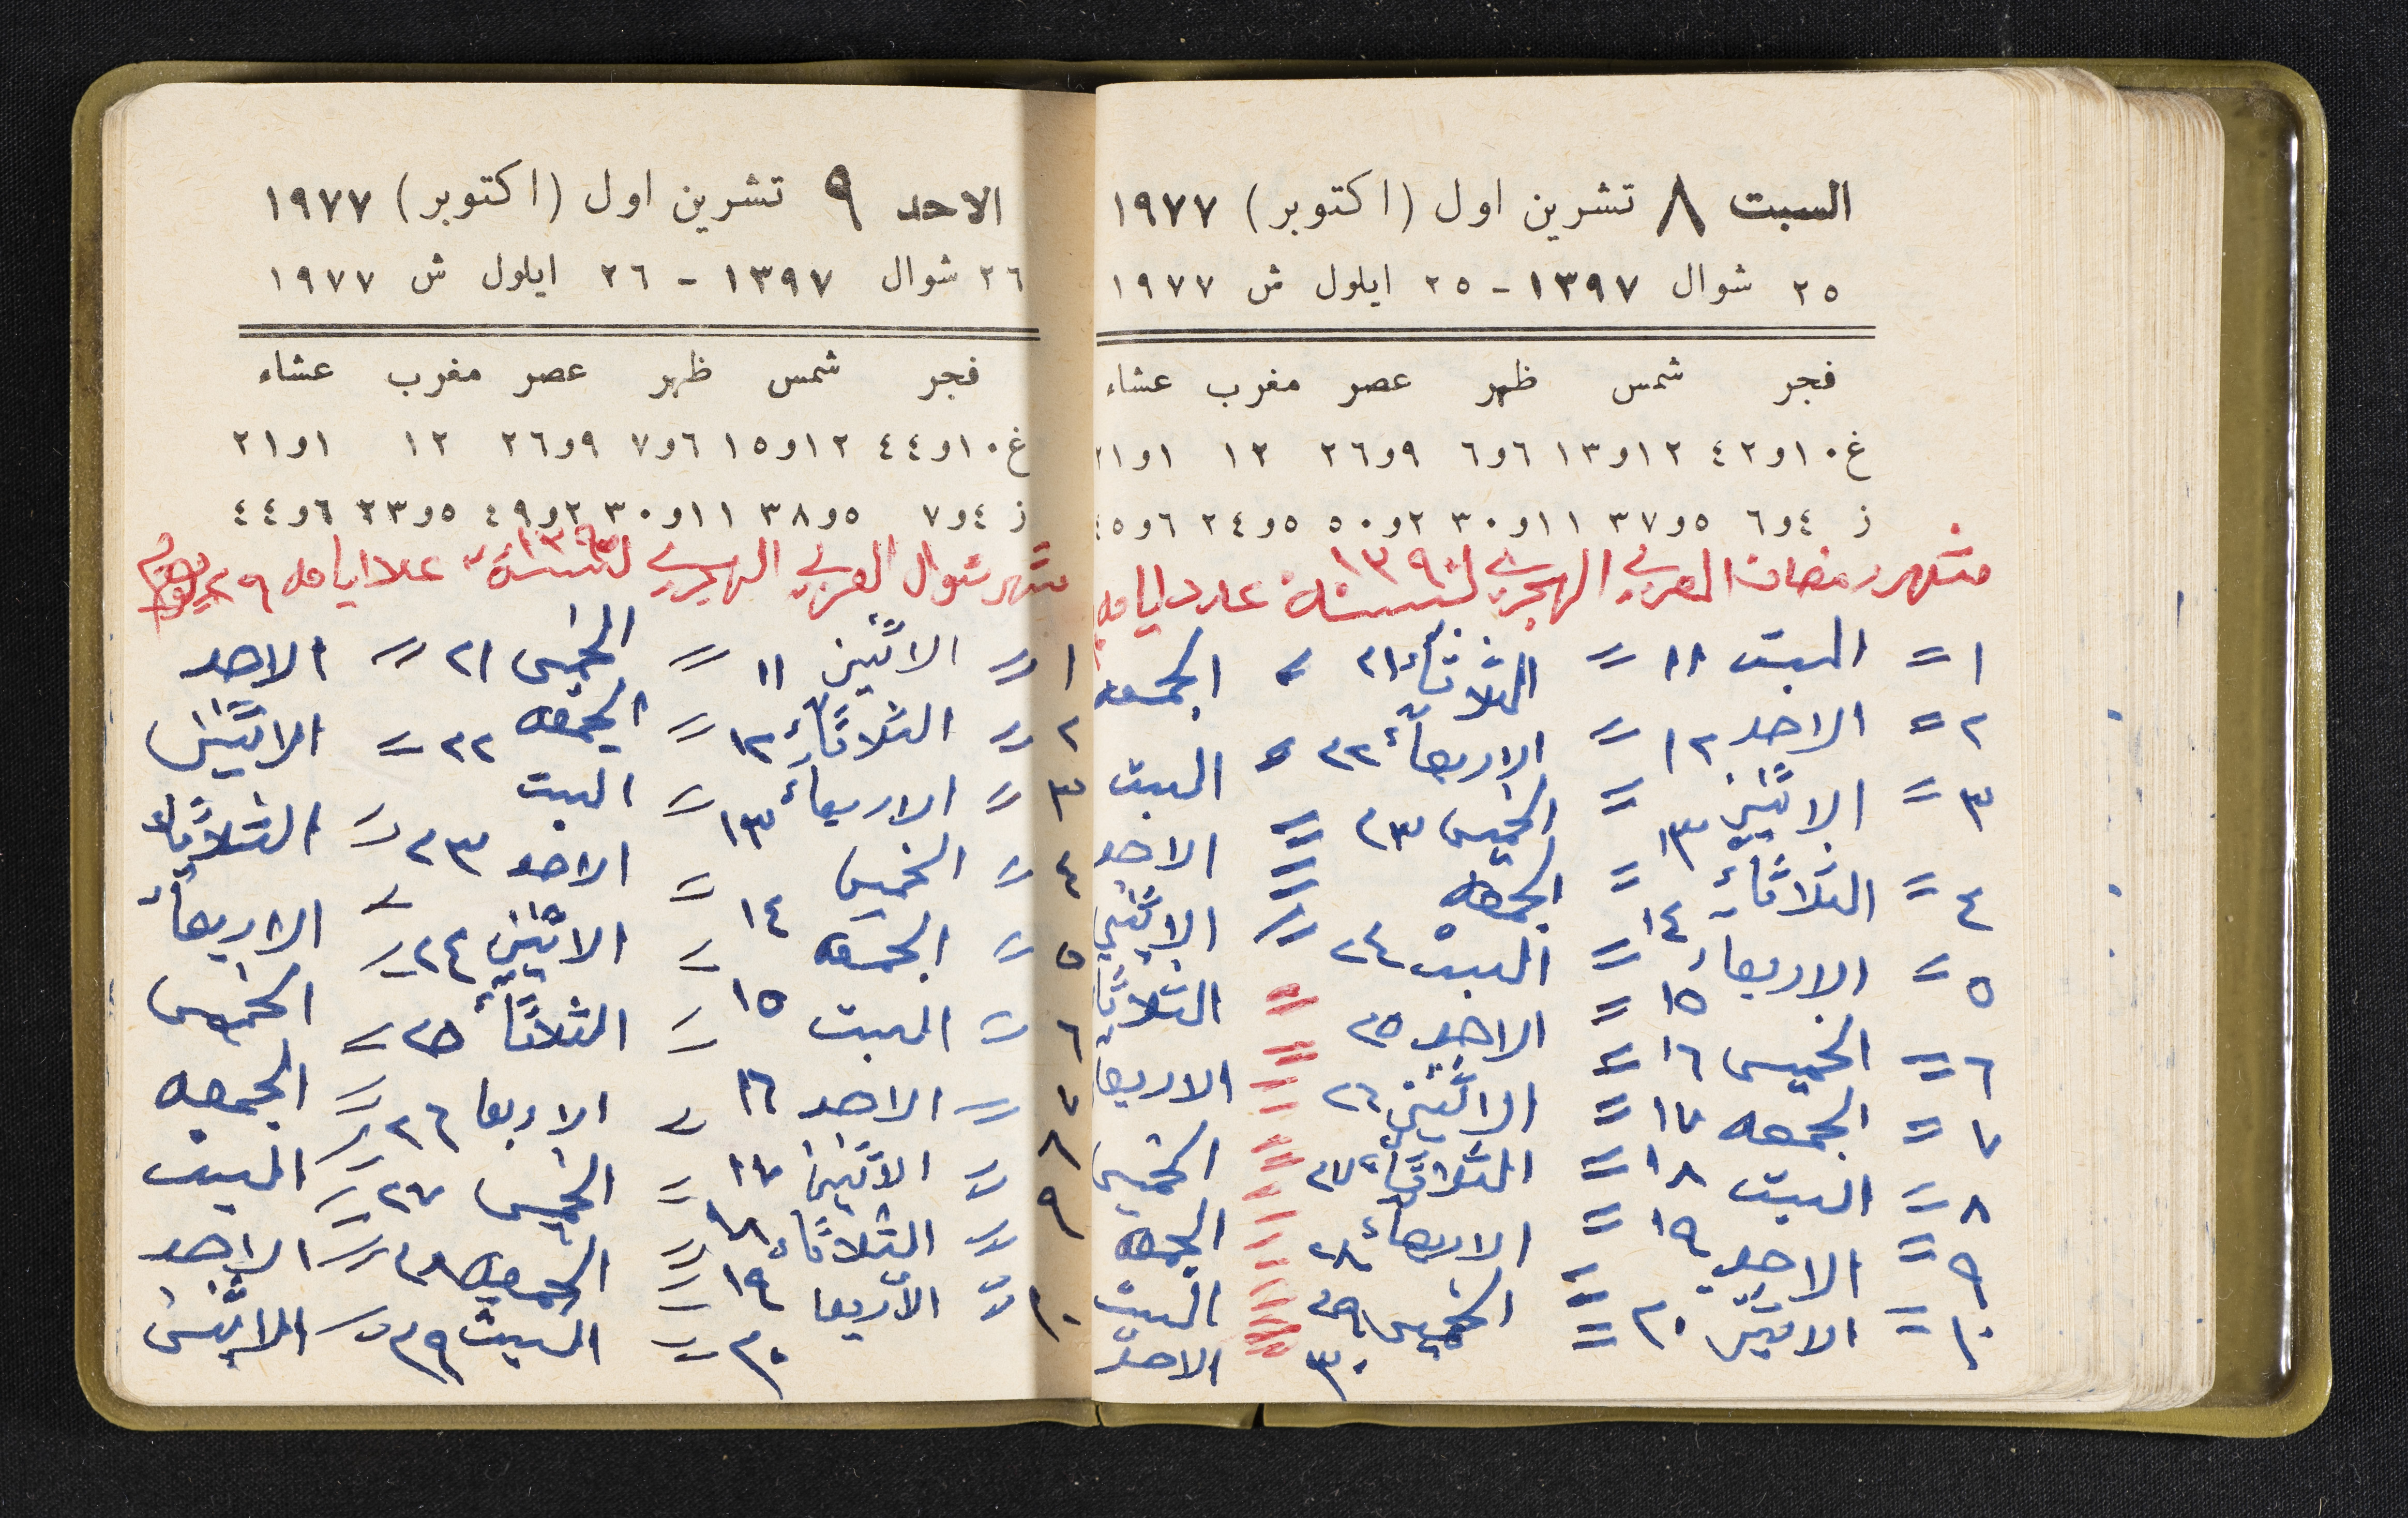 السبت ٨ تشرين اول (اكتوبر) ١٩٧٧
٢٥ شوال ١٣٩٧ - ٢٥ ايلول ش ١٩٧٧
فجر شمس ظهر عصر مغرب عشاء
غ ١٠و٤٢ ١٢و١٣ ٦و٦ ٩و٢٦ ١٢ ١و٢١
ز ٤و٦ ٥و٣٧ ١١و٣٠ ٢و٥٠ ٥و٢٤ ٦و٤٥
شهر رمضان العربي الهجري لسنة ١٣٩٠ عدد ايامه
١ = السبت ١١ = الثلاثاء ٢١ = الجمعه
٢ = الاحد ١٢ = الاربعاء ٢٢ = السبت
٣ = الاثنين ١٣ = الخميس ٢٣ = الاحد
٤ = الثلاثاء ١٤ = الجمعه = الاثنين
٥ = الاربعاء ١٥ = السبت ٢٤ = الثلاثا
٦ = الخميس ١٦ = الاحد ٢٥ = الاربعا
٧ = الجمعه ١٧ = الاثنين ٢٦ = الخميس
٨ = السبت ١٨ = الثلاثاء ٢٧ = الجمعه
٩ = الاحد ١٩ = الاربعاء ٢٨ = السبت
١٠ = الاثنين ٢٠ = الخميس ٢٩ = الاحد
٣٠
الاحد ٩ تشرين اول (اكتوبر) ١٩٧٧
٢٦ شوال ١٣٩٧ - ٢٦ ايلول ش ١٩٧٧
فجر شمس ظهر عصر مغرب عشاء
غ ١٠و٤٤ ١٢و١٥ ٦و٧ ٩و٢٦ ١٢ ١و٢١
ز ٤و٧ ٥و٣٨ ١١و٣٠ ٢و٤٩ ٥و٢٣ ٦و٤٤
شهر شوال العربي الهجري لسنة ١٣٩٠ عدد ايامه ٢٩ يوم
١ = الاثنين ١١ = الخميس ٢١ = الاحد
٢ = الثلاثاء ١٢ = الجمعه ٢٢ = الاثنين
٣ = الاربعاء ١٣ = السبت = الثلاثاء
٤ = الخميس ١٤ = الاحد ٢٣ = الاربعاء
٥ = الجمعه ١٥ = الاثنين ٢٤ = الخميس
٦ = السبت = الثلاثاء ٢٥ = الجمعه
٧ = الاحد ١٦ = الاربعا ٢٦ = السبت
٨ = الاثنين ١٧ = الخميس ٢٧ = الاحد
٩ = الثلاثاء ١٨ = الجمعه ٢٨ = الاثنين
١٠ = الاربعا ١٩ = السبت ٢٩ =
٢٠